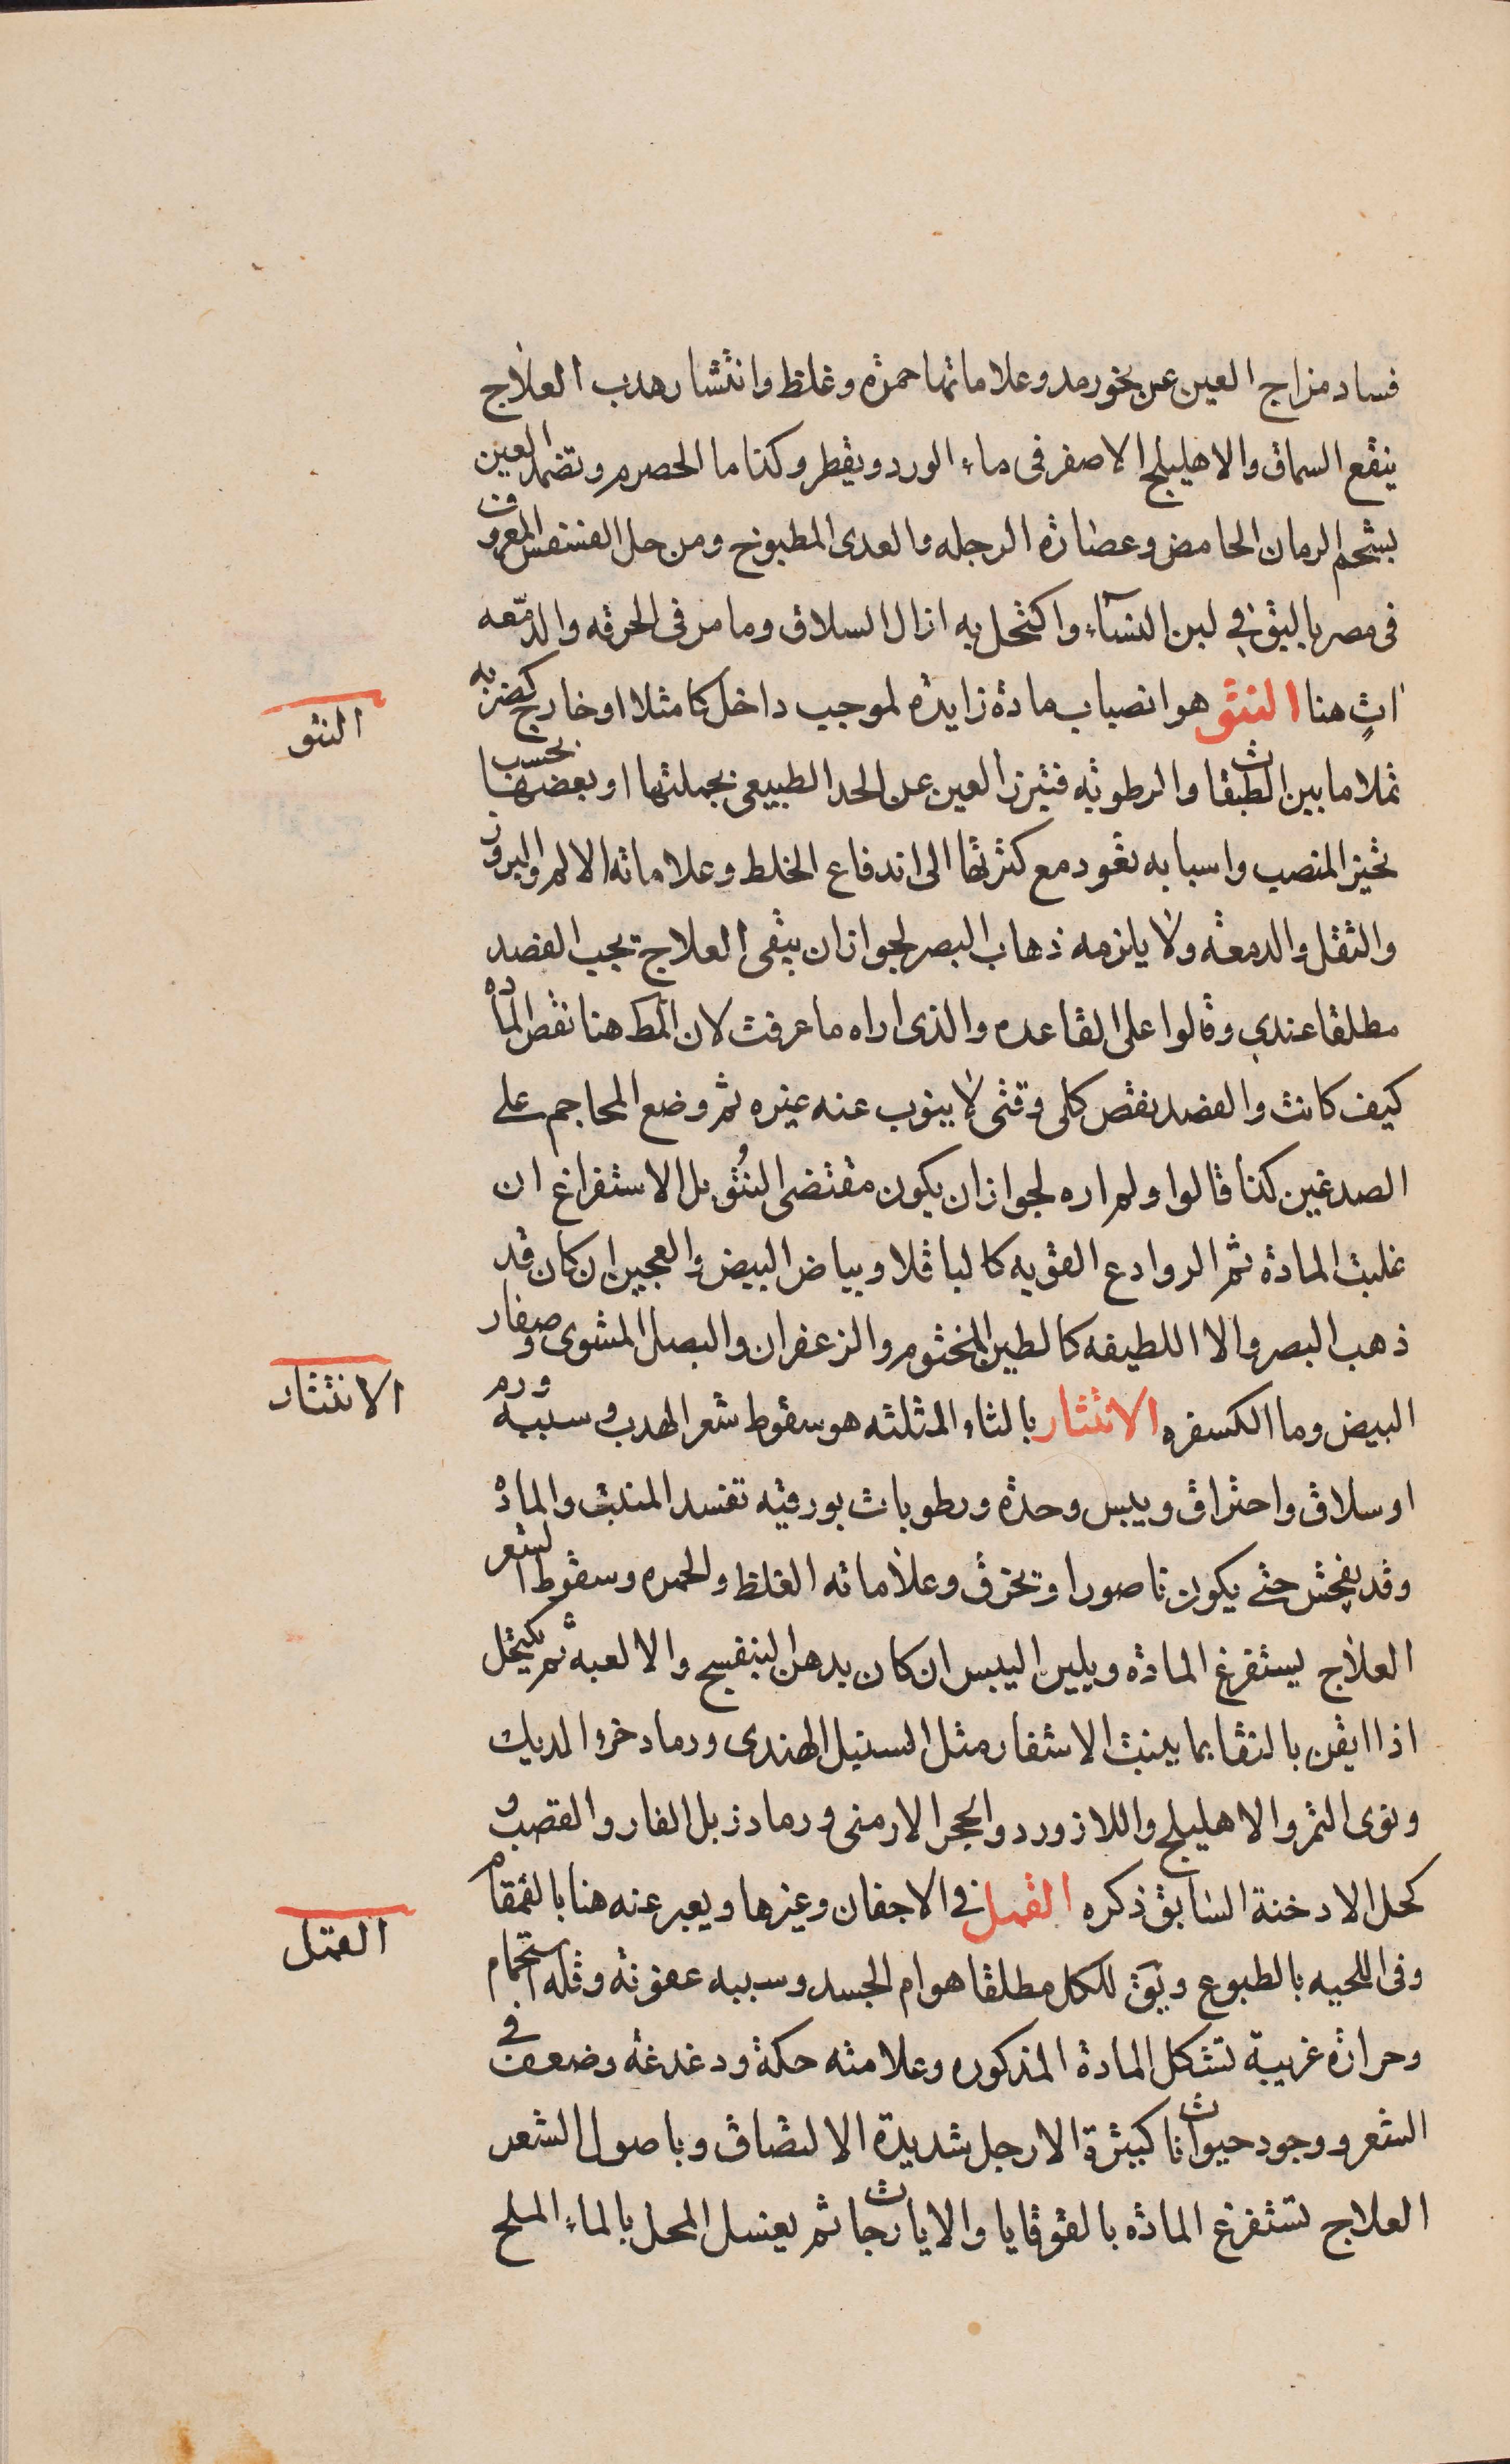 فساد مزاج العين عن نحو رمد وعلاماتها حمرة وغلظ وانتشار هدب العلاج
ينقع السماق والاهليلج الاصفر فى ماء الورد ويقطر وكذا ما الحصرم وتضمد العين
بشحم الرمان الحامض وعصارة الرجله والعدى المطبوخ ومن حل الفنتفس المعروف
فى مصر بالبق في لبن النسآء واكتحل به ازال السلاق وما مر فى الحرقه والدمعه
اتٍ هنا النتو هو انصباب مادة زايدة لموجب داخل كا مثلا او خارج كضربه
تملا ما بين الطبقات والرطوبه فتبرز العين عن الحد الطبيعى بجملتها او بعضها بحسب
تحيز المنصب واسبابه تعود مع كثرتها الى اندفاع الخلط وعلاماته الالم والبروز
والثقل والدمعة ولا يلزمه ذهاب البصر لجواز ان يبقى العلاج يجب الفصد
مطلقا عندي وقالوا على القاعده والذى اراه ما عرفت لان المط هنا نقص المادة
كيف كانت والفصد نقص كلى وقتى لا ينوب عنه غيره ثم وضع المحاجم على
الصدغين كذا قالوا ولم اره لجواز ان يكون مقتضى النُتو بل الاستفراغ ان
غلبت المادة ثم الروادع القويه كالباقلا وبياض البيض والعجين ان كان قد
ذهب البصر والا اللطيفه كالطين المختوم والزعفران والبصل المشوى وصفار
البيض وما الكسفره الانتثار بالثاء المثلثه هو سقوط شعر الهدب وسببه ورم
او سلاق واحتراق ويبس وحدة ورطوبات بورقيه تفسد المنبت والمادة
وقد يفحش حتى يكون ناصورا وتخرق وعلاماته الغلظ والحمره وسقوط الشعر
العلاج يستفرغ المادة ويلين اليبس ان كان بدهن البنفسج والالعبة ثم يكتحل
اذا ايقن بالنقا بما ينبت الاشفار مثل السنبل الهندى ورماد خرء الديك
ونوى التمر والاهليلج واللازورد والحجر الارمنى ورماد زبل الفار والقصب و
كحل الادخنة السابق ذكره القمل فى الاجفان وغيرها ويعبر عنه هنا بالقمقام
وفى اللحيه بالطبوع ويَق للكل مطلقا هوام الجسد وسببه عفونة وقله استحمام
وحرارة غريبة تشكل المادة المذكوره وعلامته حكة ودغدغة وضعف فى
الشعر ووجود حيوانات كبيرة الارجل شديدة الالتصاق وباصول الشعر
العلاج تستفرغ المادة بالقوقايا والايارجات ثم يغسل المحل بالماء الملح
النتو
الانتثار
القمل